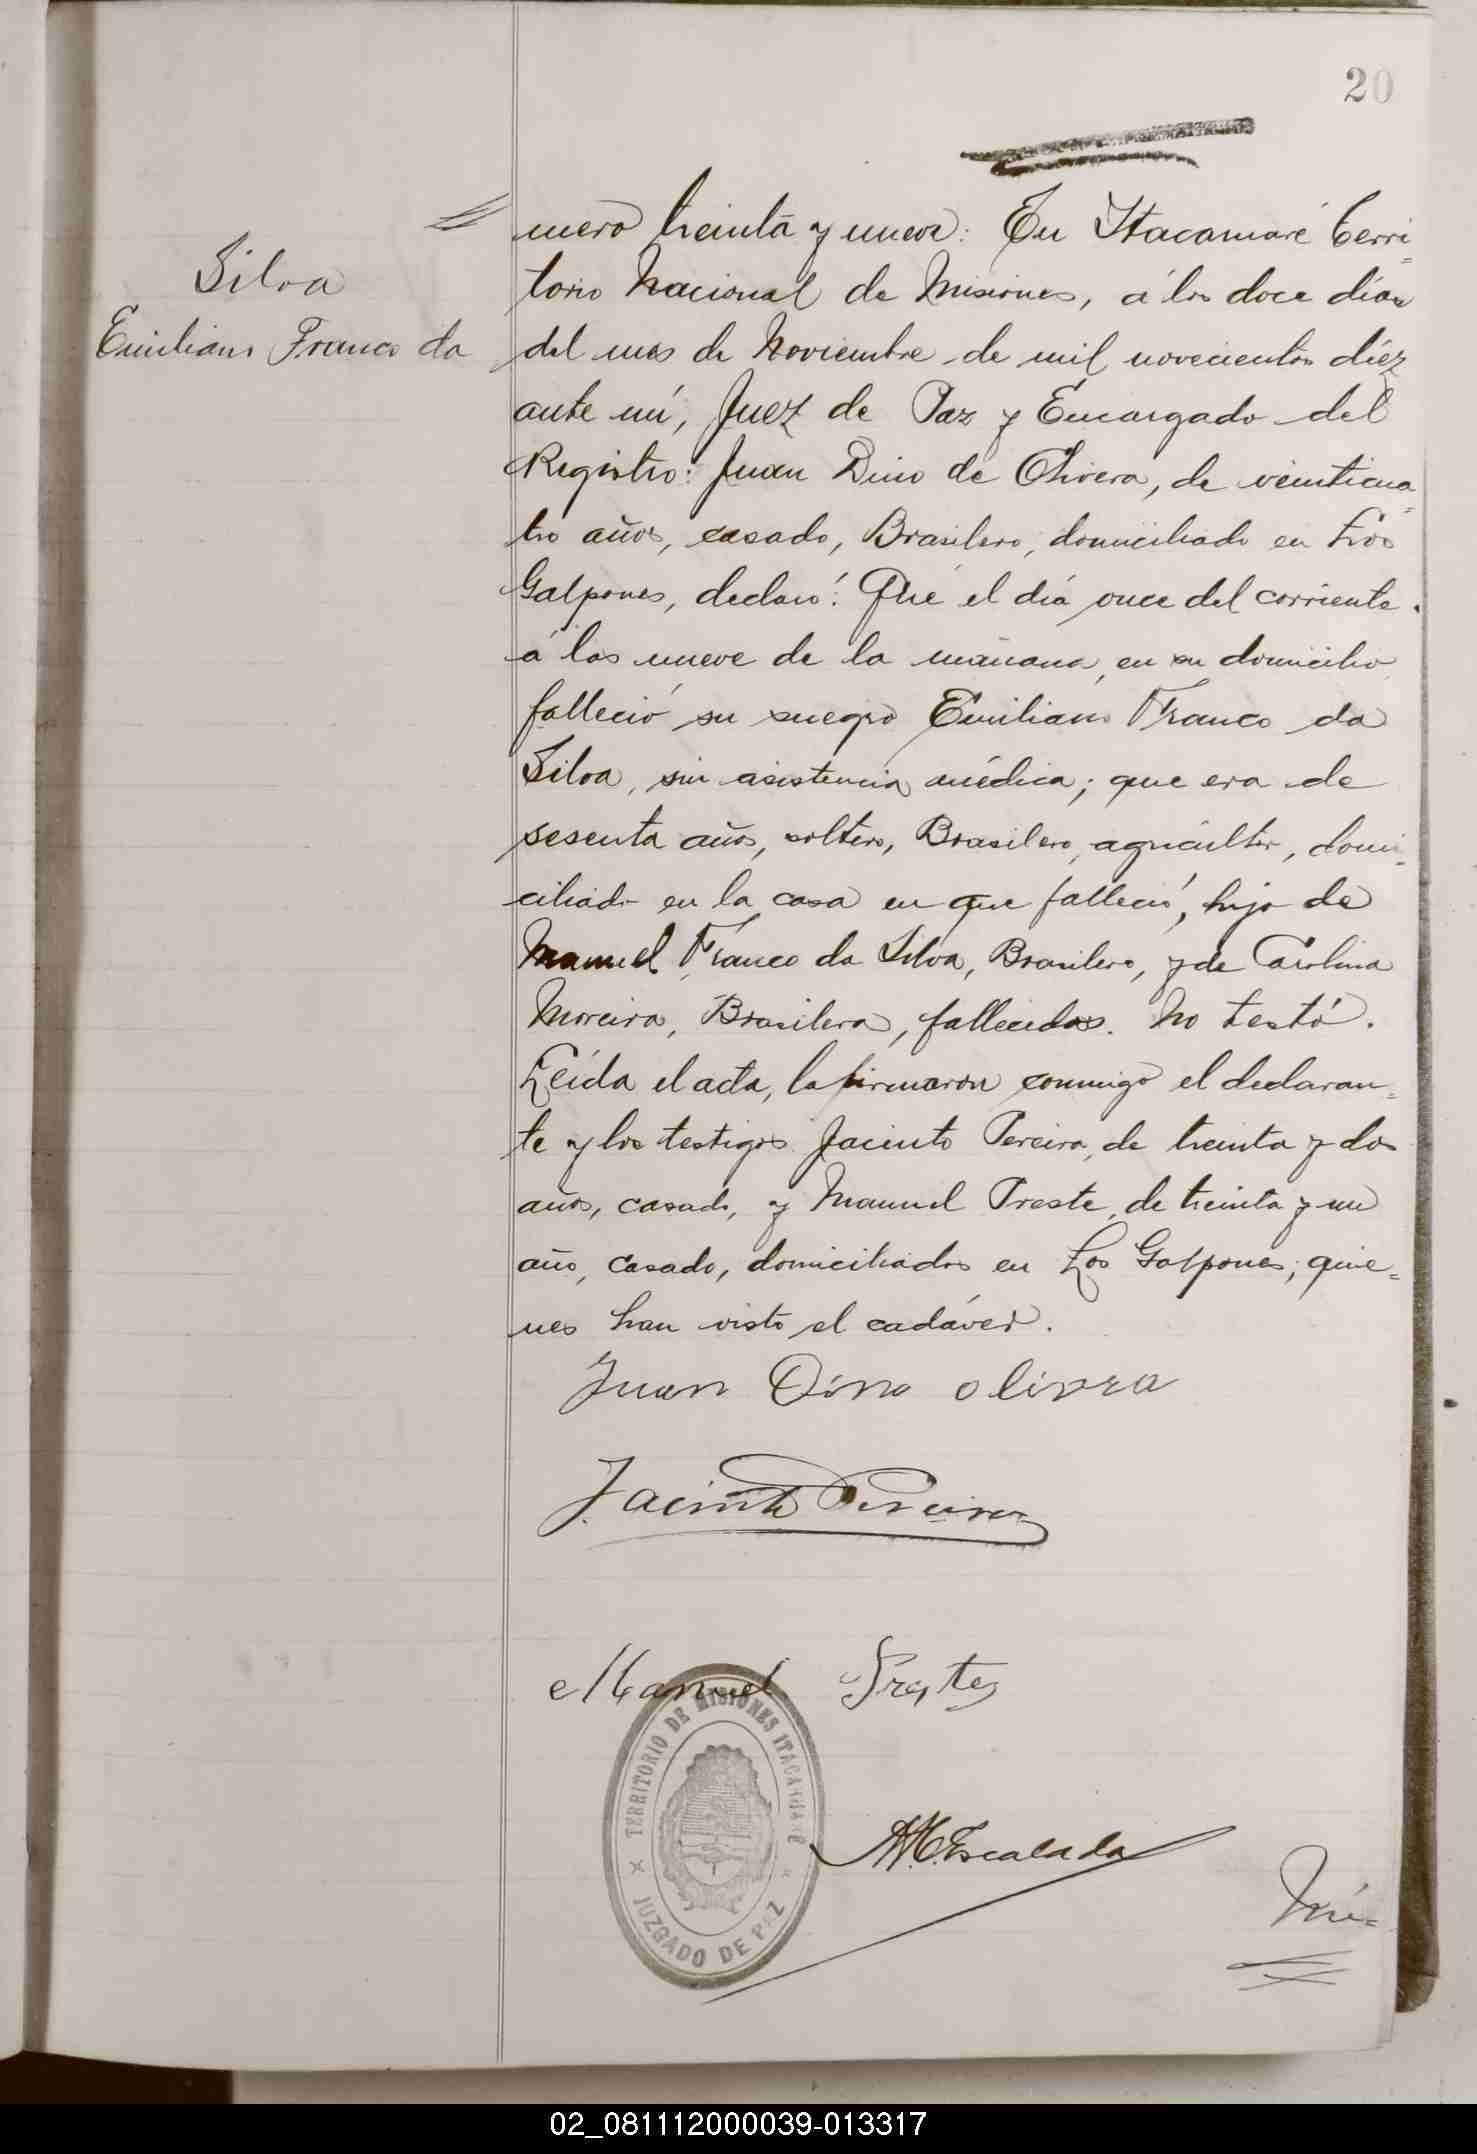 20
Silva
Emiliano Franco da
mero treinta y nueve: En Itacaruaré Terri-
torio Nacional de Misiones, á los doce dias
del mes de Noviembre de mil novecientos diez
ante mí, Juez de Paz y Encargado del
Registro: Juan Dino de Olivera, de veinticua-
tro años, casado, Brasilero, domiciliado en Los
Galpones, declaró: Que el día once del corriente.
á las nueve de la mañana, en su domicilio
falleció su suegro Emiliano Franco da
Silva, sin asistencia médica; que era de
sesenta años, soltero, Brasilero, agricultor, domi-
ciliado en la casa en que falleció, hijo de
Manuel Franco da Silva, Brasilero, y de Carolina
Moreira, Brasilera, fallecidos. No testó.
Leída el acta, la firmaron conmigo el declaran-
te y los testigos Jacinto Pereira, de treinta y dos
años, casado, y Manuel Preste, de treinta y un
año, casado, domiciliados en Los Galpones; quie-
nes han visto el cadáver.
Juan Dino olivera
Jacinto Pereira
Manuel Prestes
TERRITORIO DE MISIONES ITACARUARÉ
JUZGADO DE PAZ
A.M. Escalada
Nú-
02_081112000039-013317